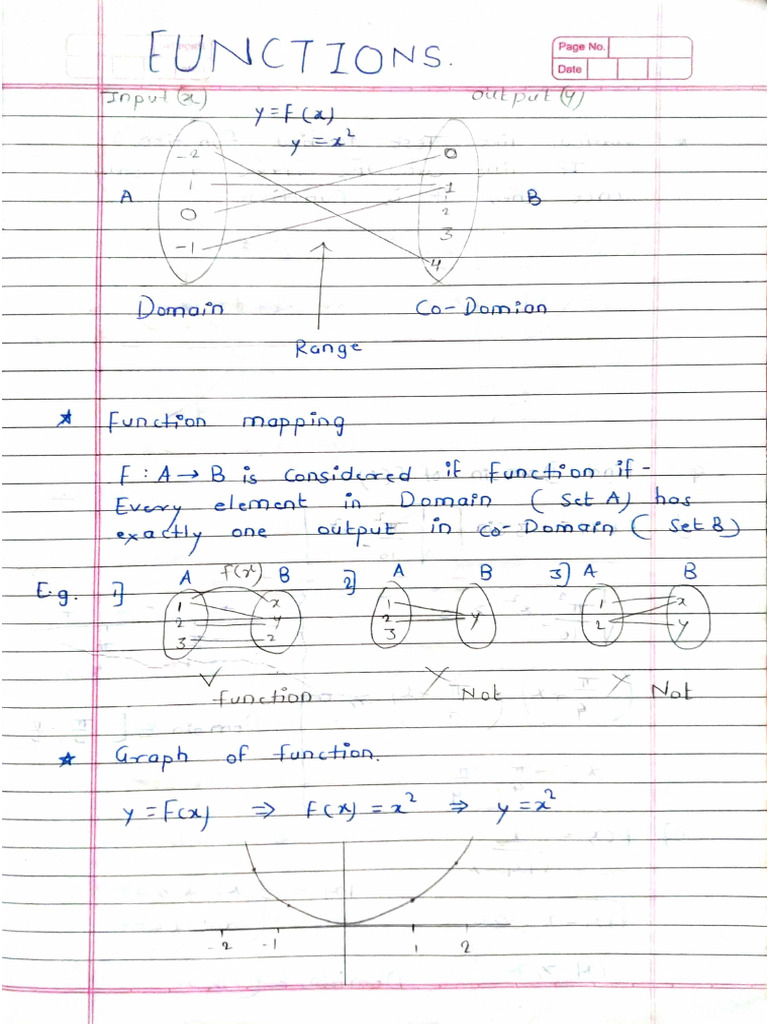 FUNCTIONS.
Page No.
Date
Input (x)
Output (y)
y = F(x)
y = x²
A
-2
1
0
-1
0
1
2
3
4
B
Domain
Co-Domion
Range
* Function mapping
F : A → B is considered if function if -
Every element in Domain ( Set A) has
exactly one output in co-Domain ( Set B)
E.g. 1] A f(x) B 2] A B 3] A B
1 x 1 1 x
2 y 2 y 2 y
3 z 3
✓ function X Not X Not
* Graph of function.
y = F(x) ⇒ F(x) = x² ⇒ y = x²
-2 -1 1 2